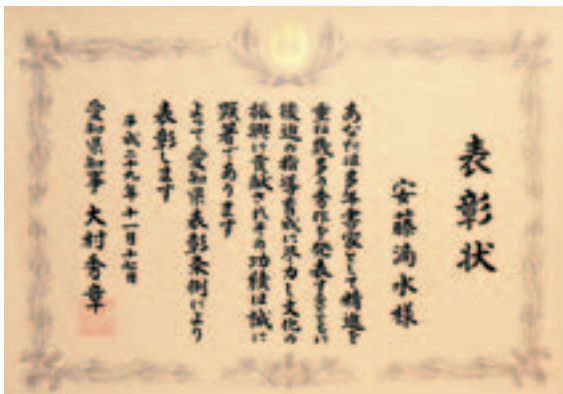 表彰状
安藤滴水様
あなたは多年書家として精進を
重ね幾多の秀作を発表するとともに
後進の指導育成に尽力し文化の
振興に貢献されその功績は誠に
顕著であります
よって愛知県表彰条例により
表彰します
平成二十九年十一月十七日
愛知県知事 大村秀章